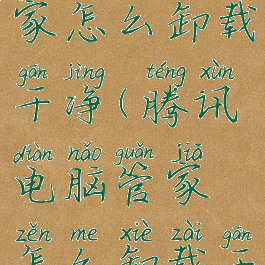 家怎么卸载
gān jìng téng xùn
干净(腾讯
diàn nǎo guǎn jiā
电脑管家
zěn me xiè zài gān
怎么卸载干